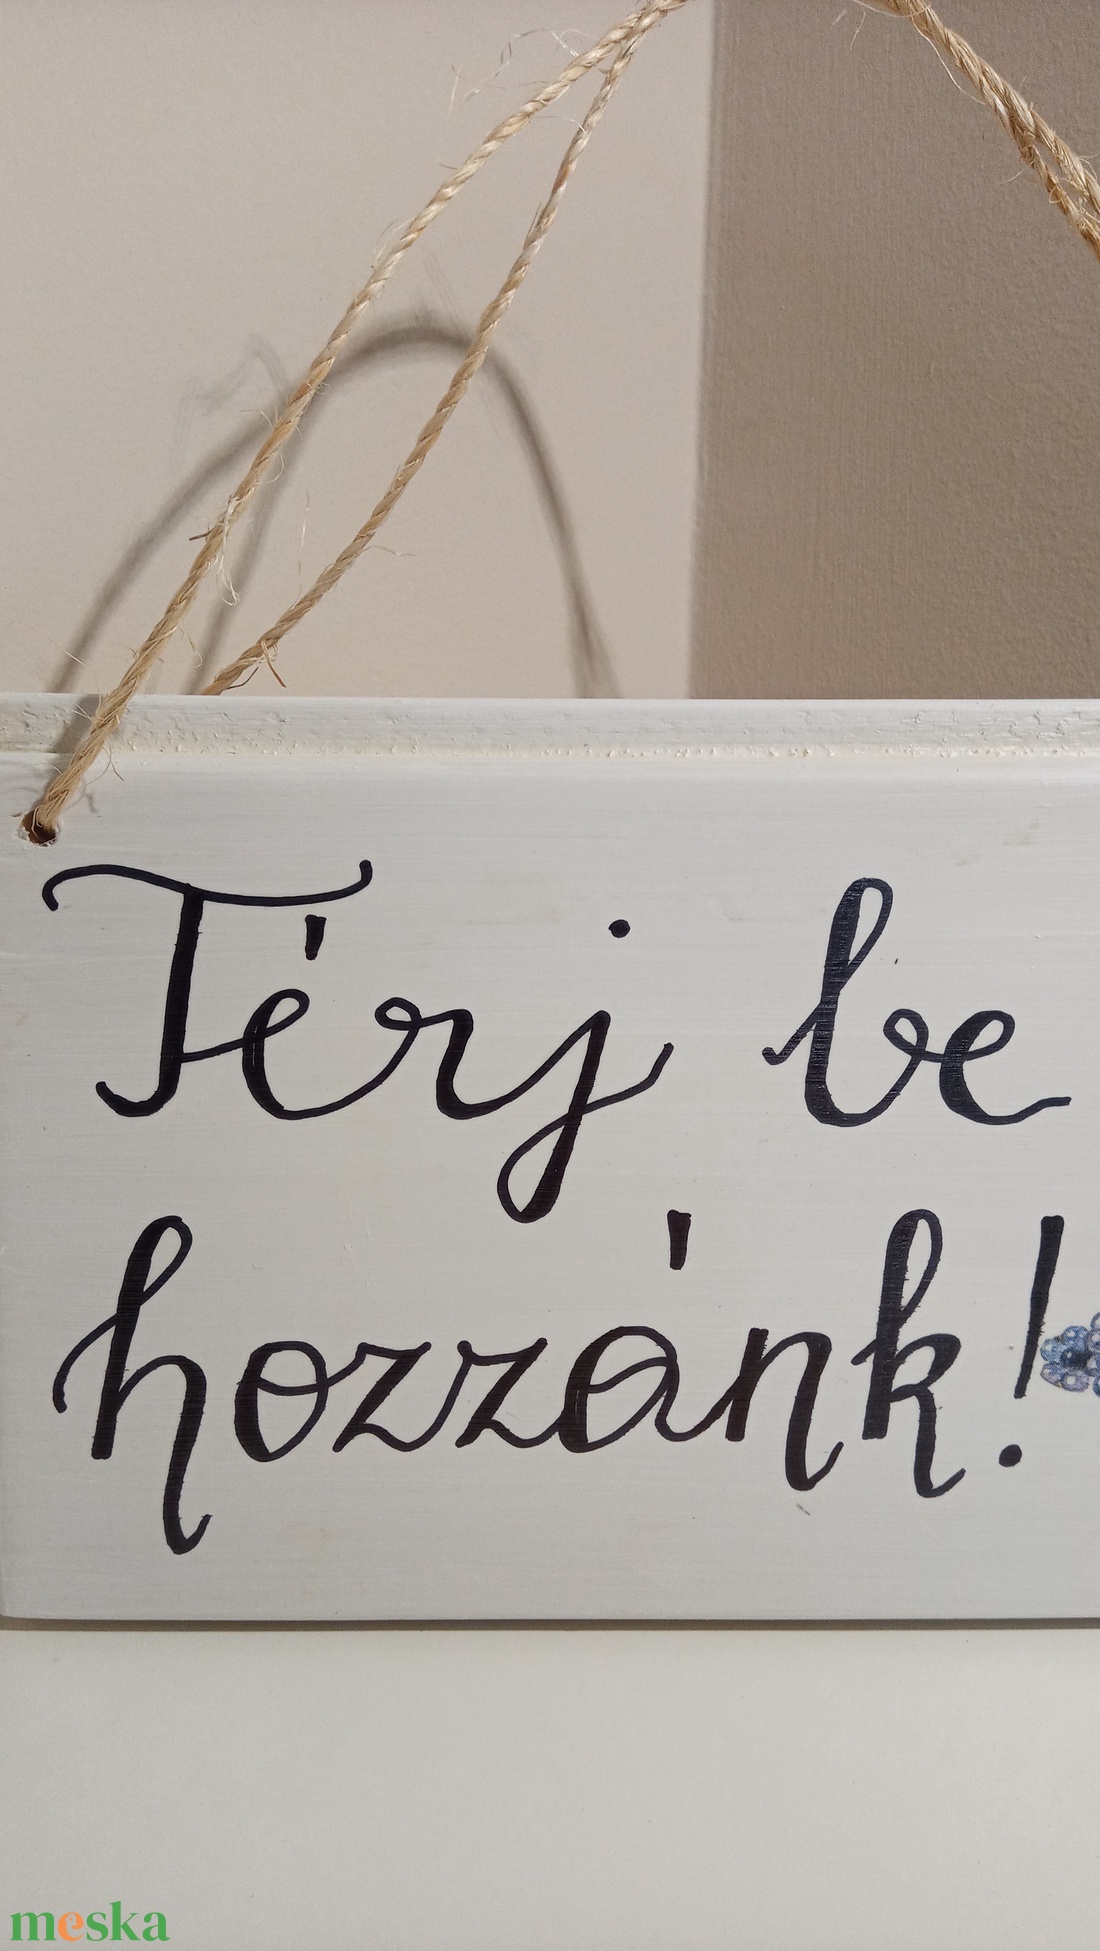 Térj be
hozzánk!
meska